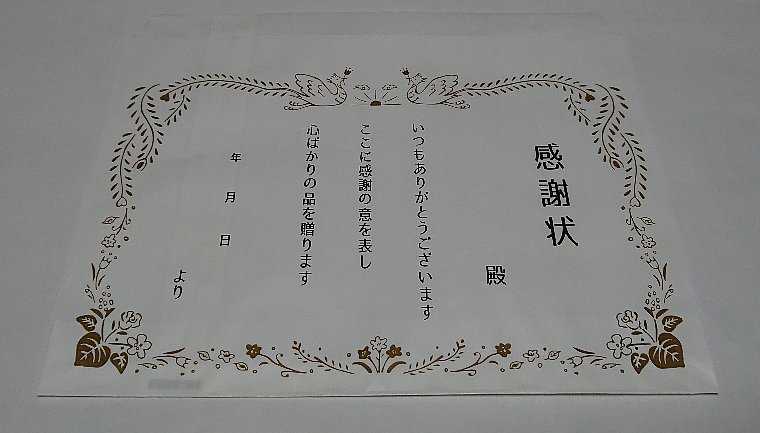 感謝状
殿
いつもありがとうございます
ここに感謝の意を表し
心ばかりの品を贈ります
年 月 日
より